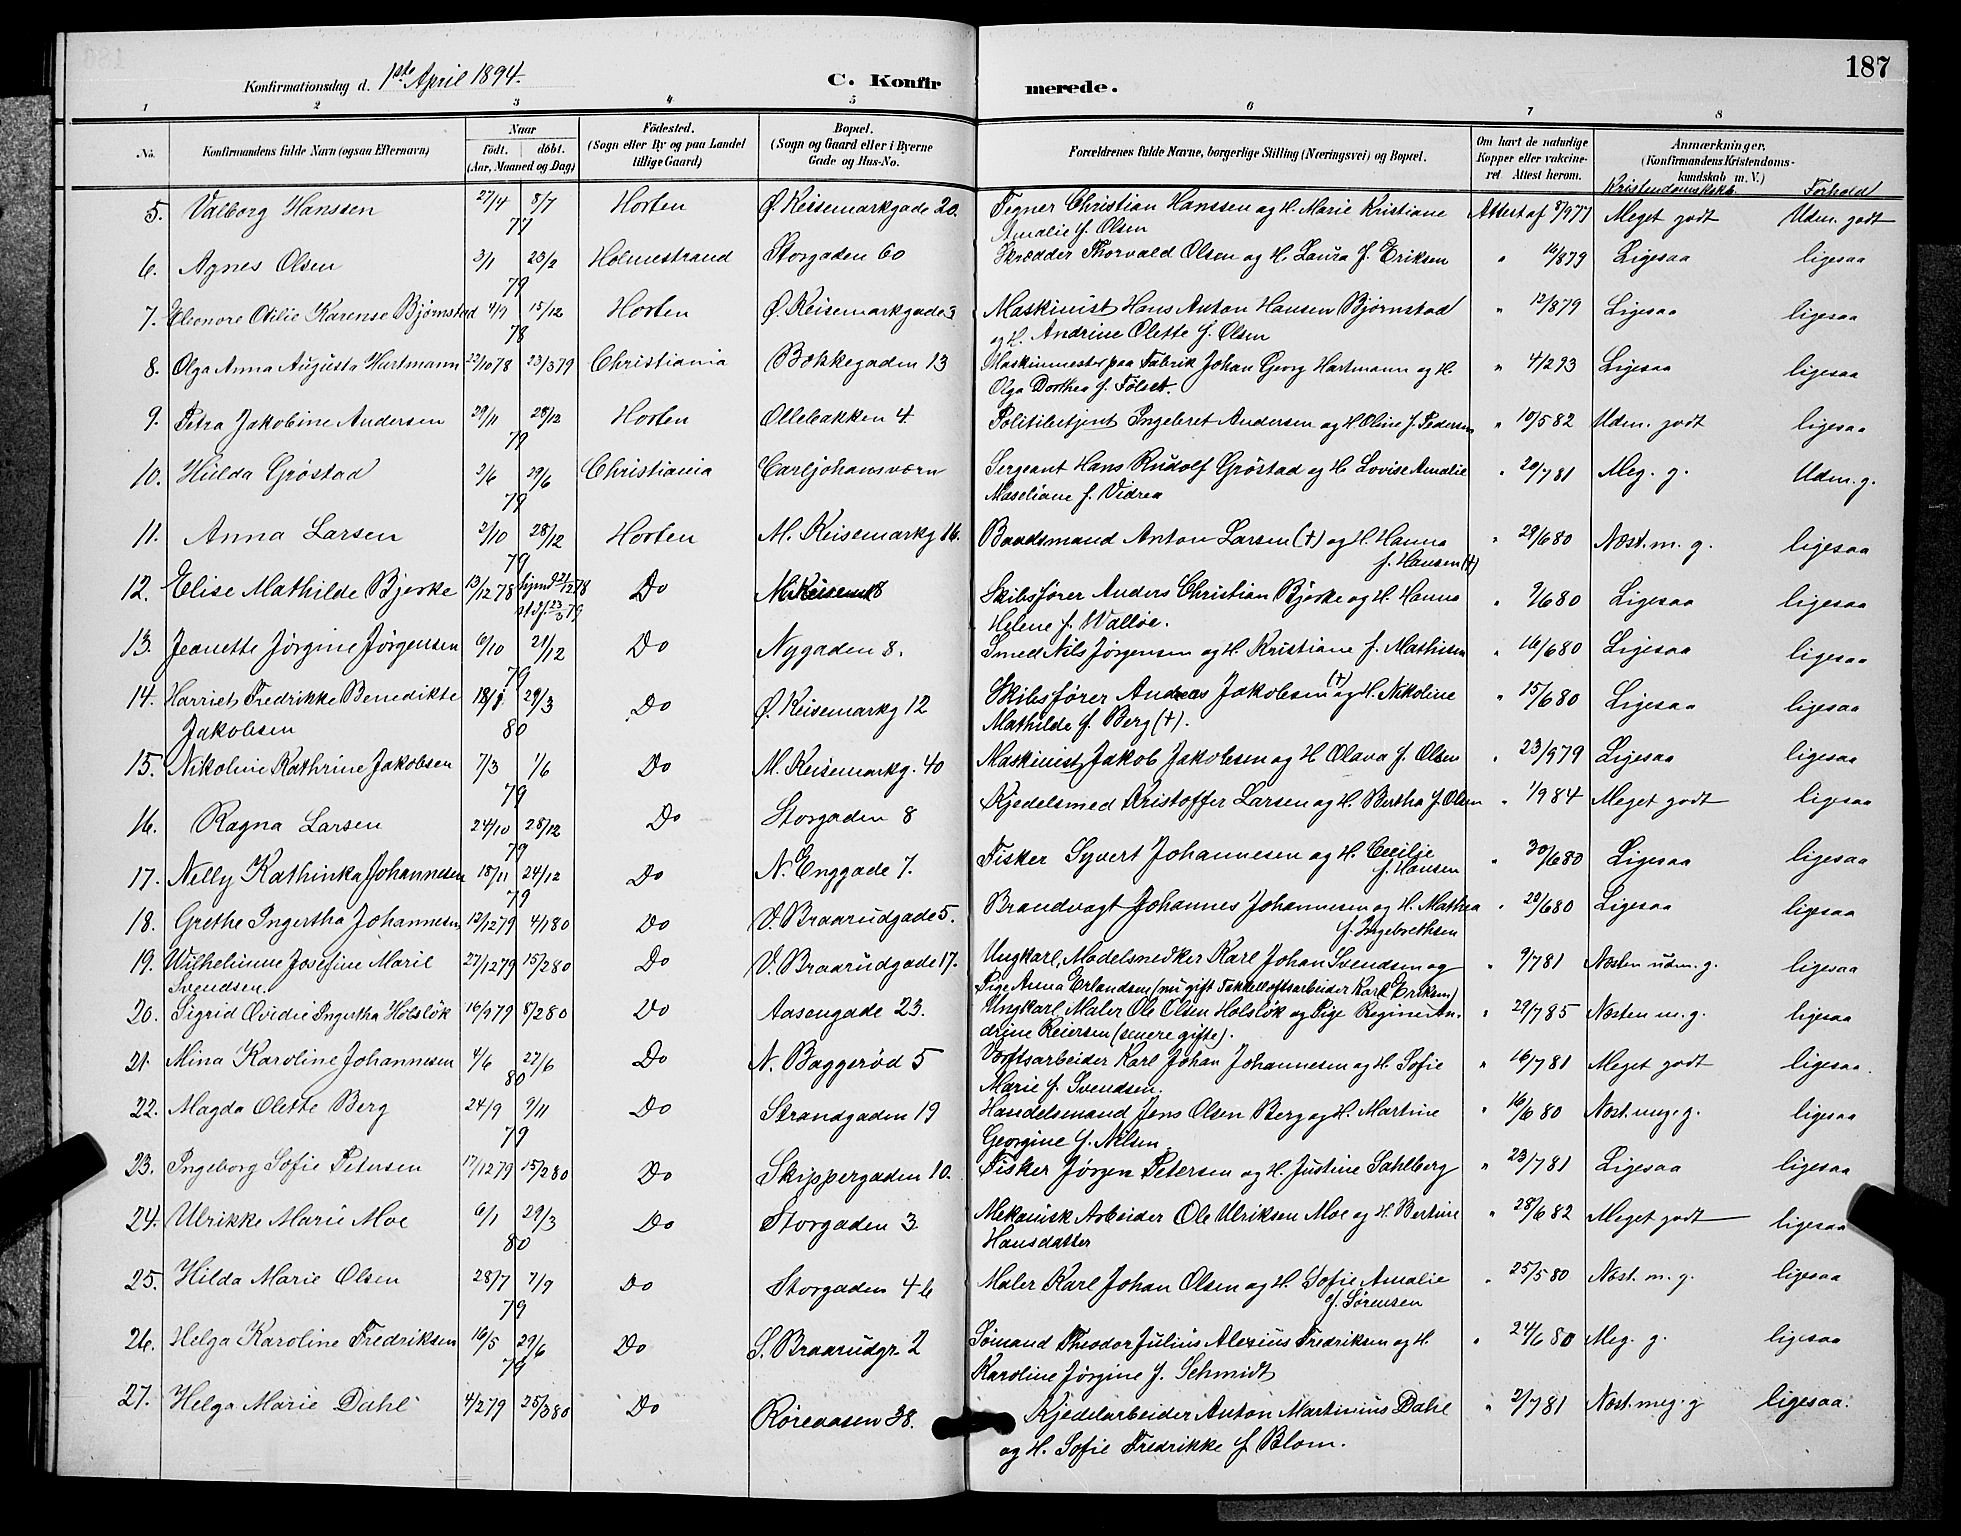 187
Konfirmationsdag d. 1ste April 1894. C. Konfirmerede.
1 2 3 4 5 6 7 8
No. Konfirmandens fulde Navn (ogsaa Efternavn) Naar Født. døbt. (Aar, Maaned og Dag) Fødested. (Sogn eller By og paa Landet tillige Gaard) Bopæl. (Sogn og Gaard eller i Byerne Gade og Hus-No. Forældrenes fulde Navne, borgerlige Stilling (Næringsvei) og Bopæl. Om havt de naturlige Kopper eller vakcineret Attest herom. Anmærkninger. (Konfirmandens Kristendomskundskab m. V.)
Kristendomskskb. Forhold
5. Valborg Hanssen 27/4 8/7 Horten Ø. Keisemarkgade 20. Tegner Christian Hanssen og H. Marie Kristiane Attest af 8/9 77 Meget godt Udm. godt
77 Amalie f. Olsen
6. Agnes Olsen 3/1 23/2 Holmestrand Storgaden 60 Skrædder Thorvald Olsen og H. Laura f. Eriksen " 16/8 79 Ligesaa ligesaa
79
7. Eleonore Otilie Karense Bjørnstad 4/9 15/12 Horten Ø. Keisemarkgade 3 Maskinist Hans Anton Hansen Bjørnstad " 12/8 79 Ligesaa ligesaa
78 og H. Andrine Olette f. Olsen
8. Olga Anna Augusta Hartmann 22/10 78 23/3 79 Christiania Bakkegaden 13 Maskinmester paa Fabrik Johan Georg Hartmann og H. " 4/2 93 Ligesaa ligesaa
Olga Dorthea f. Følset.
9. Petra Jakobine Andersen 29/11 28/12 Horten Ollebakken 4. Politibetjent Ingebret Andersen og H. Oline f. Pedersen " 10/5 82 Udm. godt ligesaa
79
10. Hulda Grøstad 2/6 29/6 Christiania Carljohansværn Sergeant Hans Rudolf Grøstad og H. Lovise Amalie " 20/7 81 Meg. g. Udm. g.
79 Maseliane f. Vidrea
11. Anna Larsen 2/10 28/12 Horten M. Keisemarkg 16. Baadsmand Anton Larsen (+) og H. Hanna " 29/6 80 Næst. m. g. ligesaa
79 f. Hansen (+)
12. Elise Mathilde Bjerke 13/12 78 hjmd 21/12 78 Do M. Keisemk 8 Skibsfører Anders Christian Bjerke og H. Hanna " 9/6 80 Ligesaa ligesaa
st. f. 23/3 79 Helene f. Walløe.
13. Jeanette Jørgine Jørgensen 6/10 21/12 Do Nygaden 8. Smed Nils Jørgensen og H. Kristiane f. Mathisen " 16/6 80 Ligesaa ligesaa
79
14. Harriet Fredrikke Benedikte 18/1 29/3 Do Ø. Keisemarkg 12 Skibsfører Andreas Jakobsen (+) og H. Nikoline " 15/6 80 Ligesaa ligesaa
Jakobsen 80 Mathilde f. Berg (+).
15. Nikoline Kathrine Jakobsen 7/3 1/6 Do M. Keisemarkg. 40 Maskinist Jakob Jakobsen og H Olava f. Olsen " 23/9 79 Ligesaa ligesaa
79
16. Ragna Larsen 24/10 28/12 Do Storgaden 8 Kjedelsmed Kristoffer Larsen og H. Bertha f. Olsen " 1/9 84 Meget godt ligesaa
79
17. Nelly Kathinka Johannesen 18/11 24/12 Do N. Enggade 7. Fisker Syvert Johannesen og H. Cecilie " 30/6 80 Ligesaa ligesaa
79 f. Hansen
18. Grethe Ingertha Johannesen 12/12 79 4/1 80 Do V. Braarudgade 5. Brandvagt Johannes Johannesen og H. Mathea " 20/6 80 Ligesaa ligesaa
f. Ingebrethsen
19. Wilhelmine Josefine Marie 27/12 79 15/2 80 Do V. Braarudgade 17. Ungkarl, Modelsnedker Karl Johan Svendsen og " 9/7 81 Næsten udm. g. ligesaa
Svendsen. Pige Anna Erlandsen (nu gift Takkelloftsarbeider Karl Eriksen)
20. Sigrid Ovidie Ingertha Holsløk 16/9 79 8/2 80 Do Aasengade 23. Ungkarl, Maler Ole Olsen Holsløk og Pige Regine An- " 29/7 85 Næsten m. g. ligesaa
drine Reiersen (senere gifte).
21. Mina Karoline Johannesen 4/6 27/6 Do N. Baggerød 5 Værftsarbeider Karl Johan Johannesen og H. Sofie " 16/7 81 Meget godt ligesaa.
80 Marie f. Svendsen.
22. Magda Olette Berg 24/9 9/11 Do Strandgaden 19 Handelsmand Jens Olsen Berg og H. Martine " 16/6 80 Næst. meg. g. ligesaa
79 Georgine f. Nilsen
23. Ingeborg Sofie Petersen 17/12 79 15/2 80 Do Skippergaden 10. Fisker Jørgen Petersen og H. Justine Sahlberg " 23/7 81 Ligesaa ligesaa
24. Ulrikke Marie Moe 6/1 29/3 Do Storgaden 3. Mekanisk Arbeider Ole Ulriksen Moe og H. Bertine " 28/6 82 Meget godt ligesaa
80 Hansdatter
25. Hilda Marie Olsen 28/7 7/9 Do Storgaden 46 Maler Karl Johan Olsen og H. Sofie Amalie " 25/5 80 Næst. m. g. ligesaa
79 f. Sørensen
26. Helga Karoline Fredriksen 16/5 29/6 Do S. Braarudgr. 2 Sømand Theodor Julius Alexius Fredriksen og H. " 24/6 80 Meg. g. ligesaa
79 Karoline Jørgine f. Schmidt
27. Helga Marie Dahl 4/2 79 25/3 80 Do Røreaasen 38. Kjedelarbeider Anton Martinius Dahl " 2/7 81 Næst. meg. g ligesaa.
og H. Sofie Fredrikke f Blom.